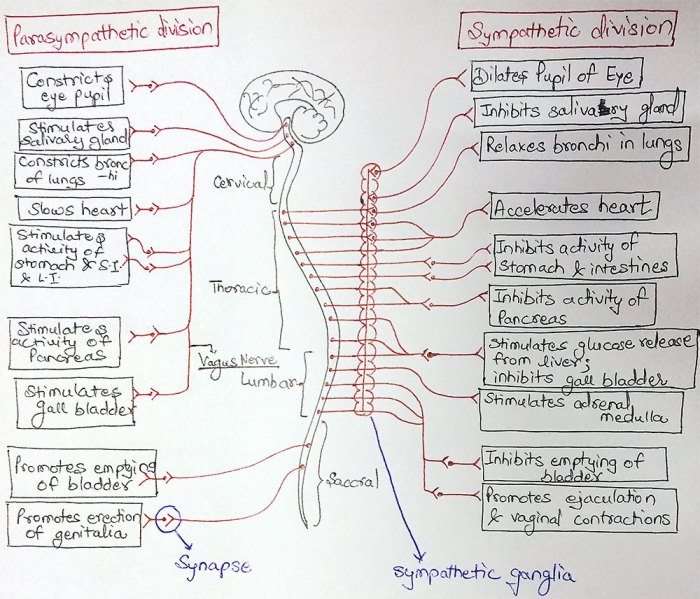 Parasympathetic division
Constricts
eye pupil
Stimulates
salivary gland
Constricts bronc
of lungs -hi
Slows heart
Stimulates
activity of
stomach & S.I.
& L.I.
Stimulates
activity of
Pancreas
Stimulates
gall bladder
Promotes emptying
of bladder
Promotes erection
of genitalia
Synapse
Cervical
Thoracic
Vagus Nerve
Lumbar
Saccral
Sympathetic division
Dilates Pupil of Eye
Inhibits salivary gland
Relaxes bronchi in lungs
Accelerates heart
Inhibits activity of
Stomach & intestines
Inhibits activity of
Pancreas
Stimulates glucose release
from liver;
inhibits gall bladder
Stimulates adrenal
medulla
Inhibits emptying of
bladder
Promotes ejaculation
& vaginal contractions
Sympathetic ganglia